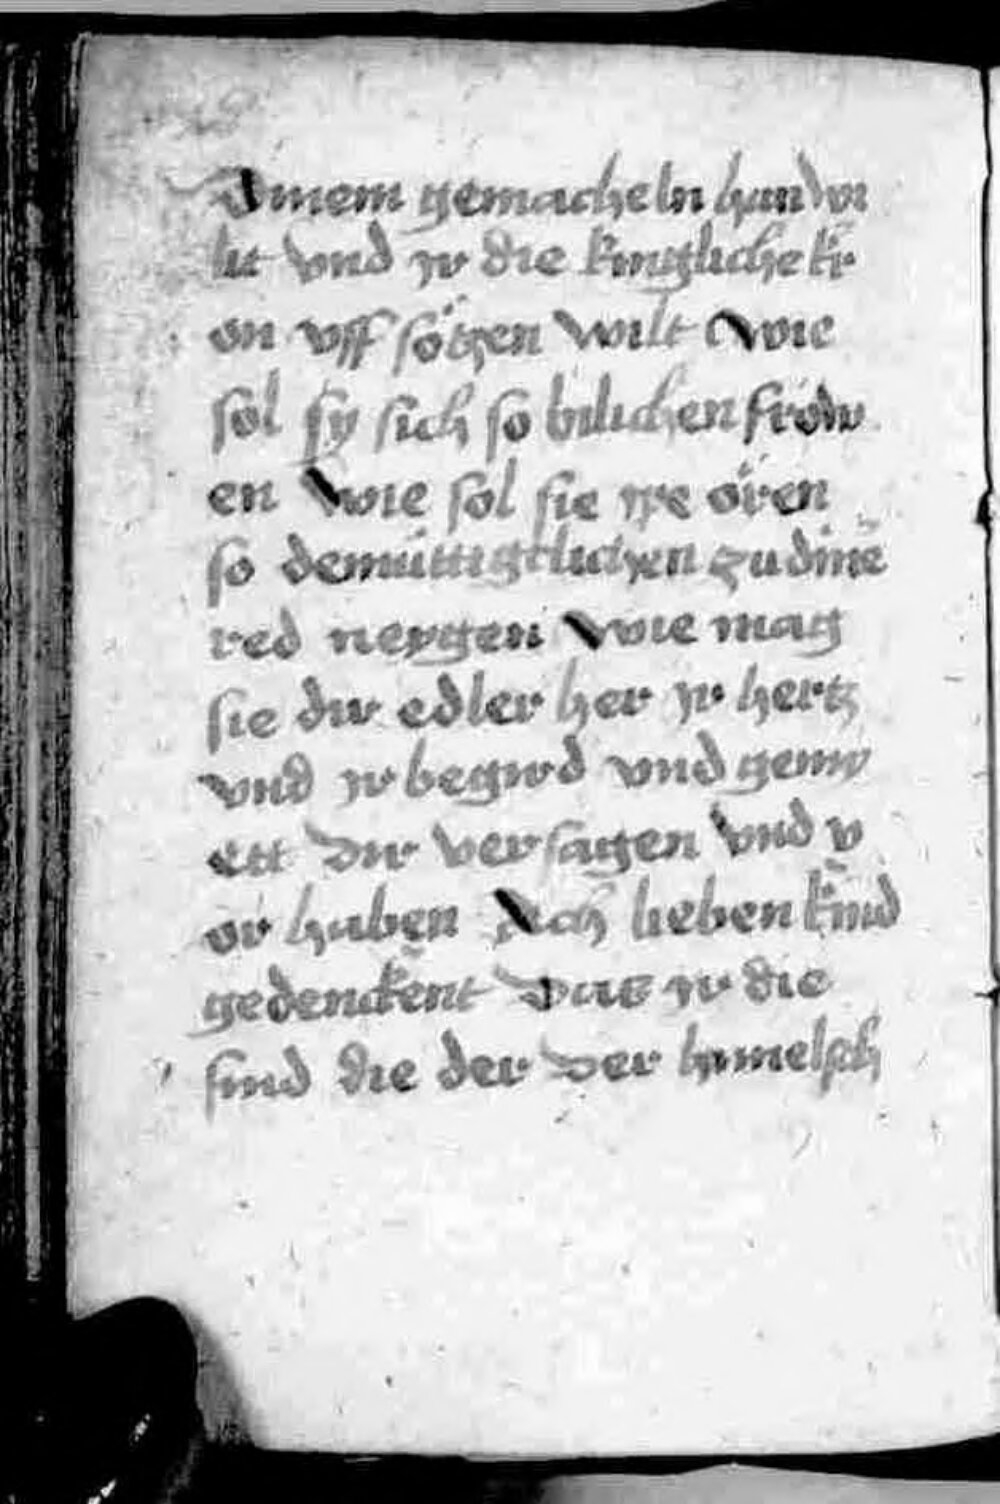 Dinem gemacheln han wi
lit vnd ir die kingliche kr
on vff sötzen wilt wie
sol sy sich so bilichen fröw
en wie sol sie ire ören
so demüttigclichen zu dinē
red neygen wie mag
sie dir edler her ir hertz
vnd ir begird vnd gemy
ett dir versagen vnd v
or haben Ach lieben kind
gedenckent daz ir die
sind die der der himelsch